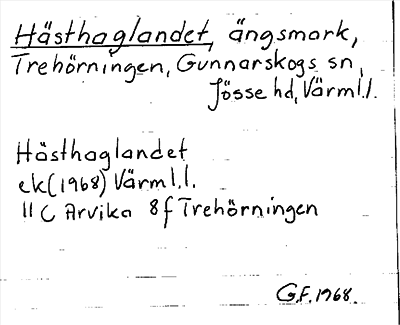 Hästhaglandet, ängsmark,
Trehörningen, Gunnarskogs sn,
Jösse hd, Värml.l.
Hästhaglandet
ek (1968) Värml.l.
11 C Arvika 8 f Trehörningen
G.F. 1968.